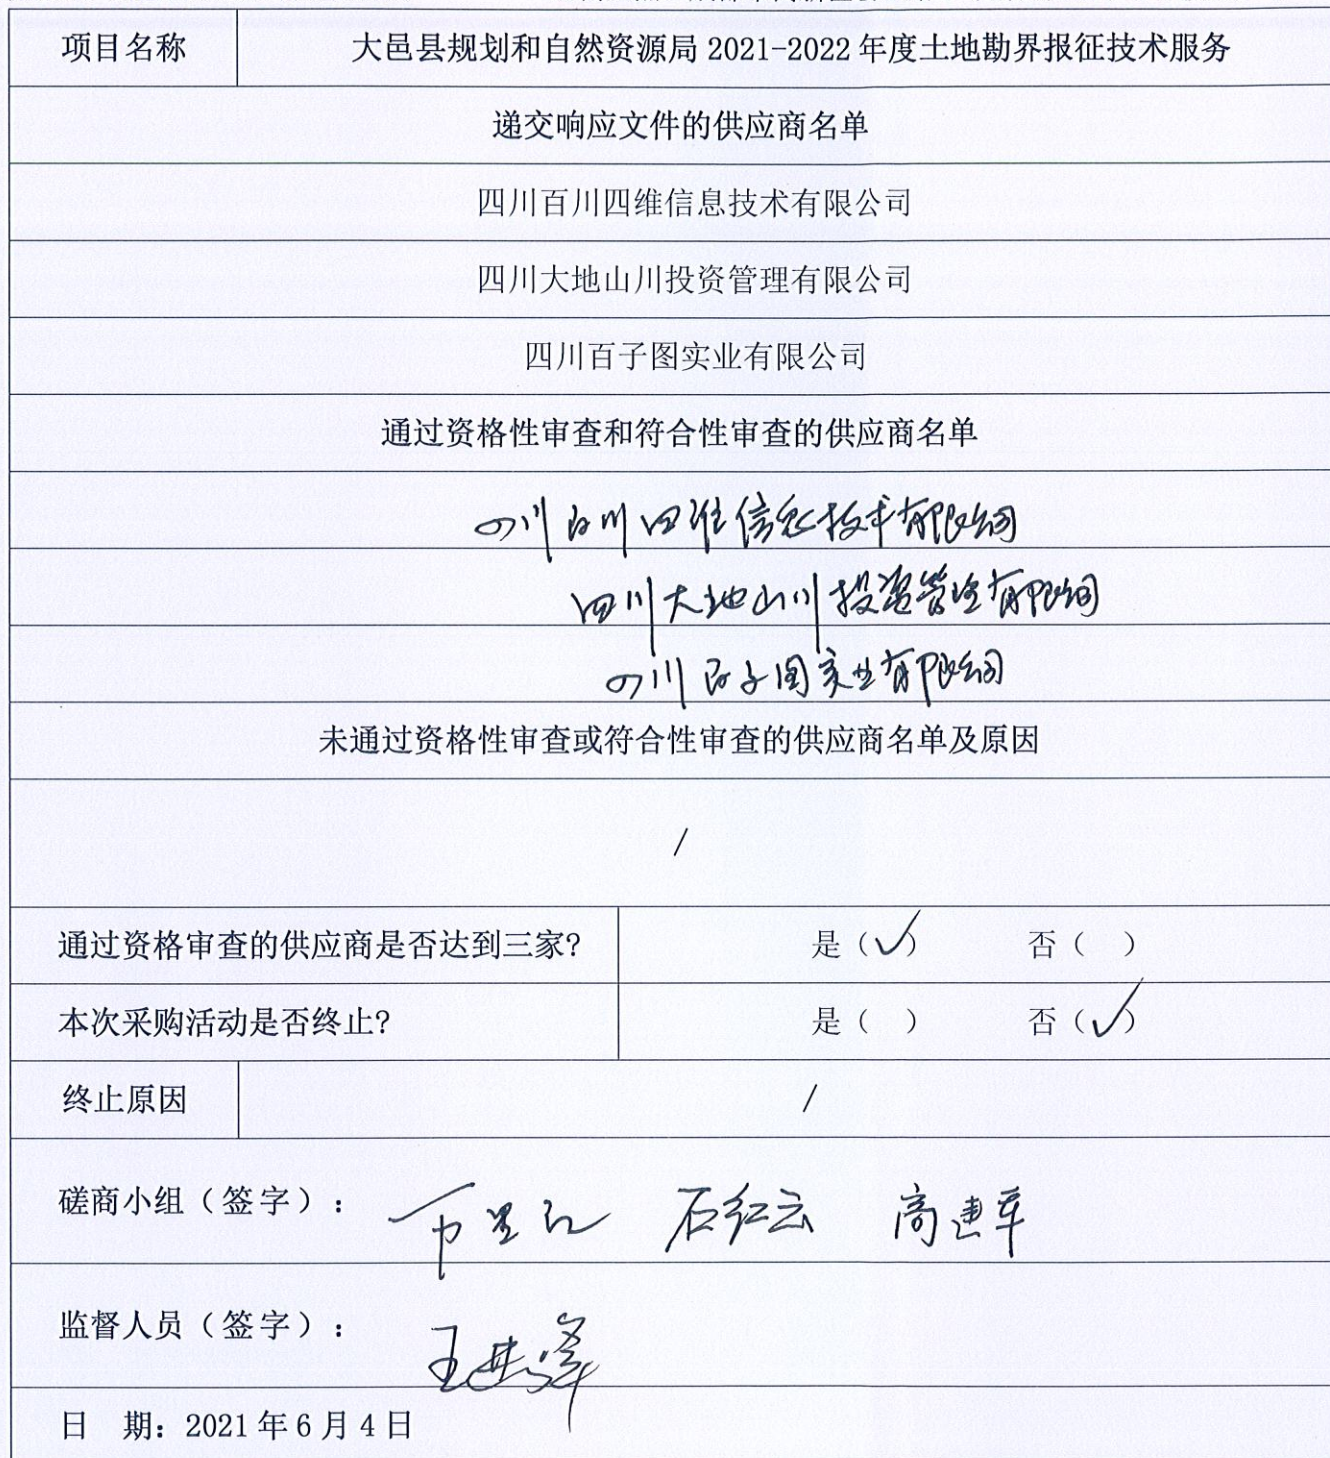 项目名称 大邑县规划和自然资源局 2021-2022 年度土地勘界报征技术服务
递交响应文件的供应商名单
四川百川四维信息技术有限公司
四川大地山川投资管理有限公司
四川百子图实业有限公司
通过资格性审查和符合性审查的供应商名单
四川百川四维信息技术有限公司
四川大地山川投资管理有限公司
四川百子图实业有限公司
未通过资格性审查或符合性审查的供应商名单及原因
/
通过资格审查的供应商是否达到三家? 是（✓） 否（ ）
本次采购活动是否终止? 是（ ） 否（✓）
终止原因 /
磋商小组（签字）： 石红云 高建军
监督人员（签字）： 王
日 期：2021 年 6 月 4 日